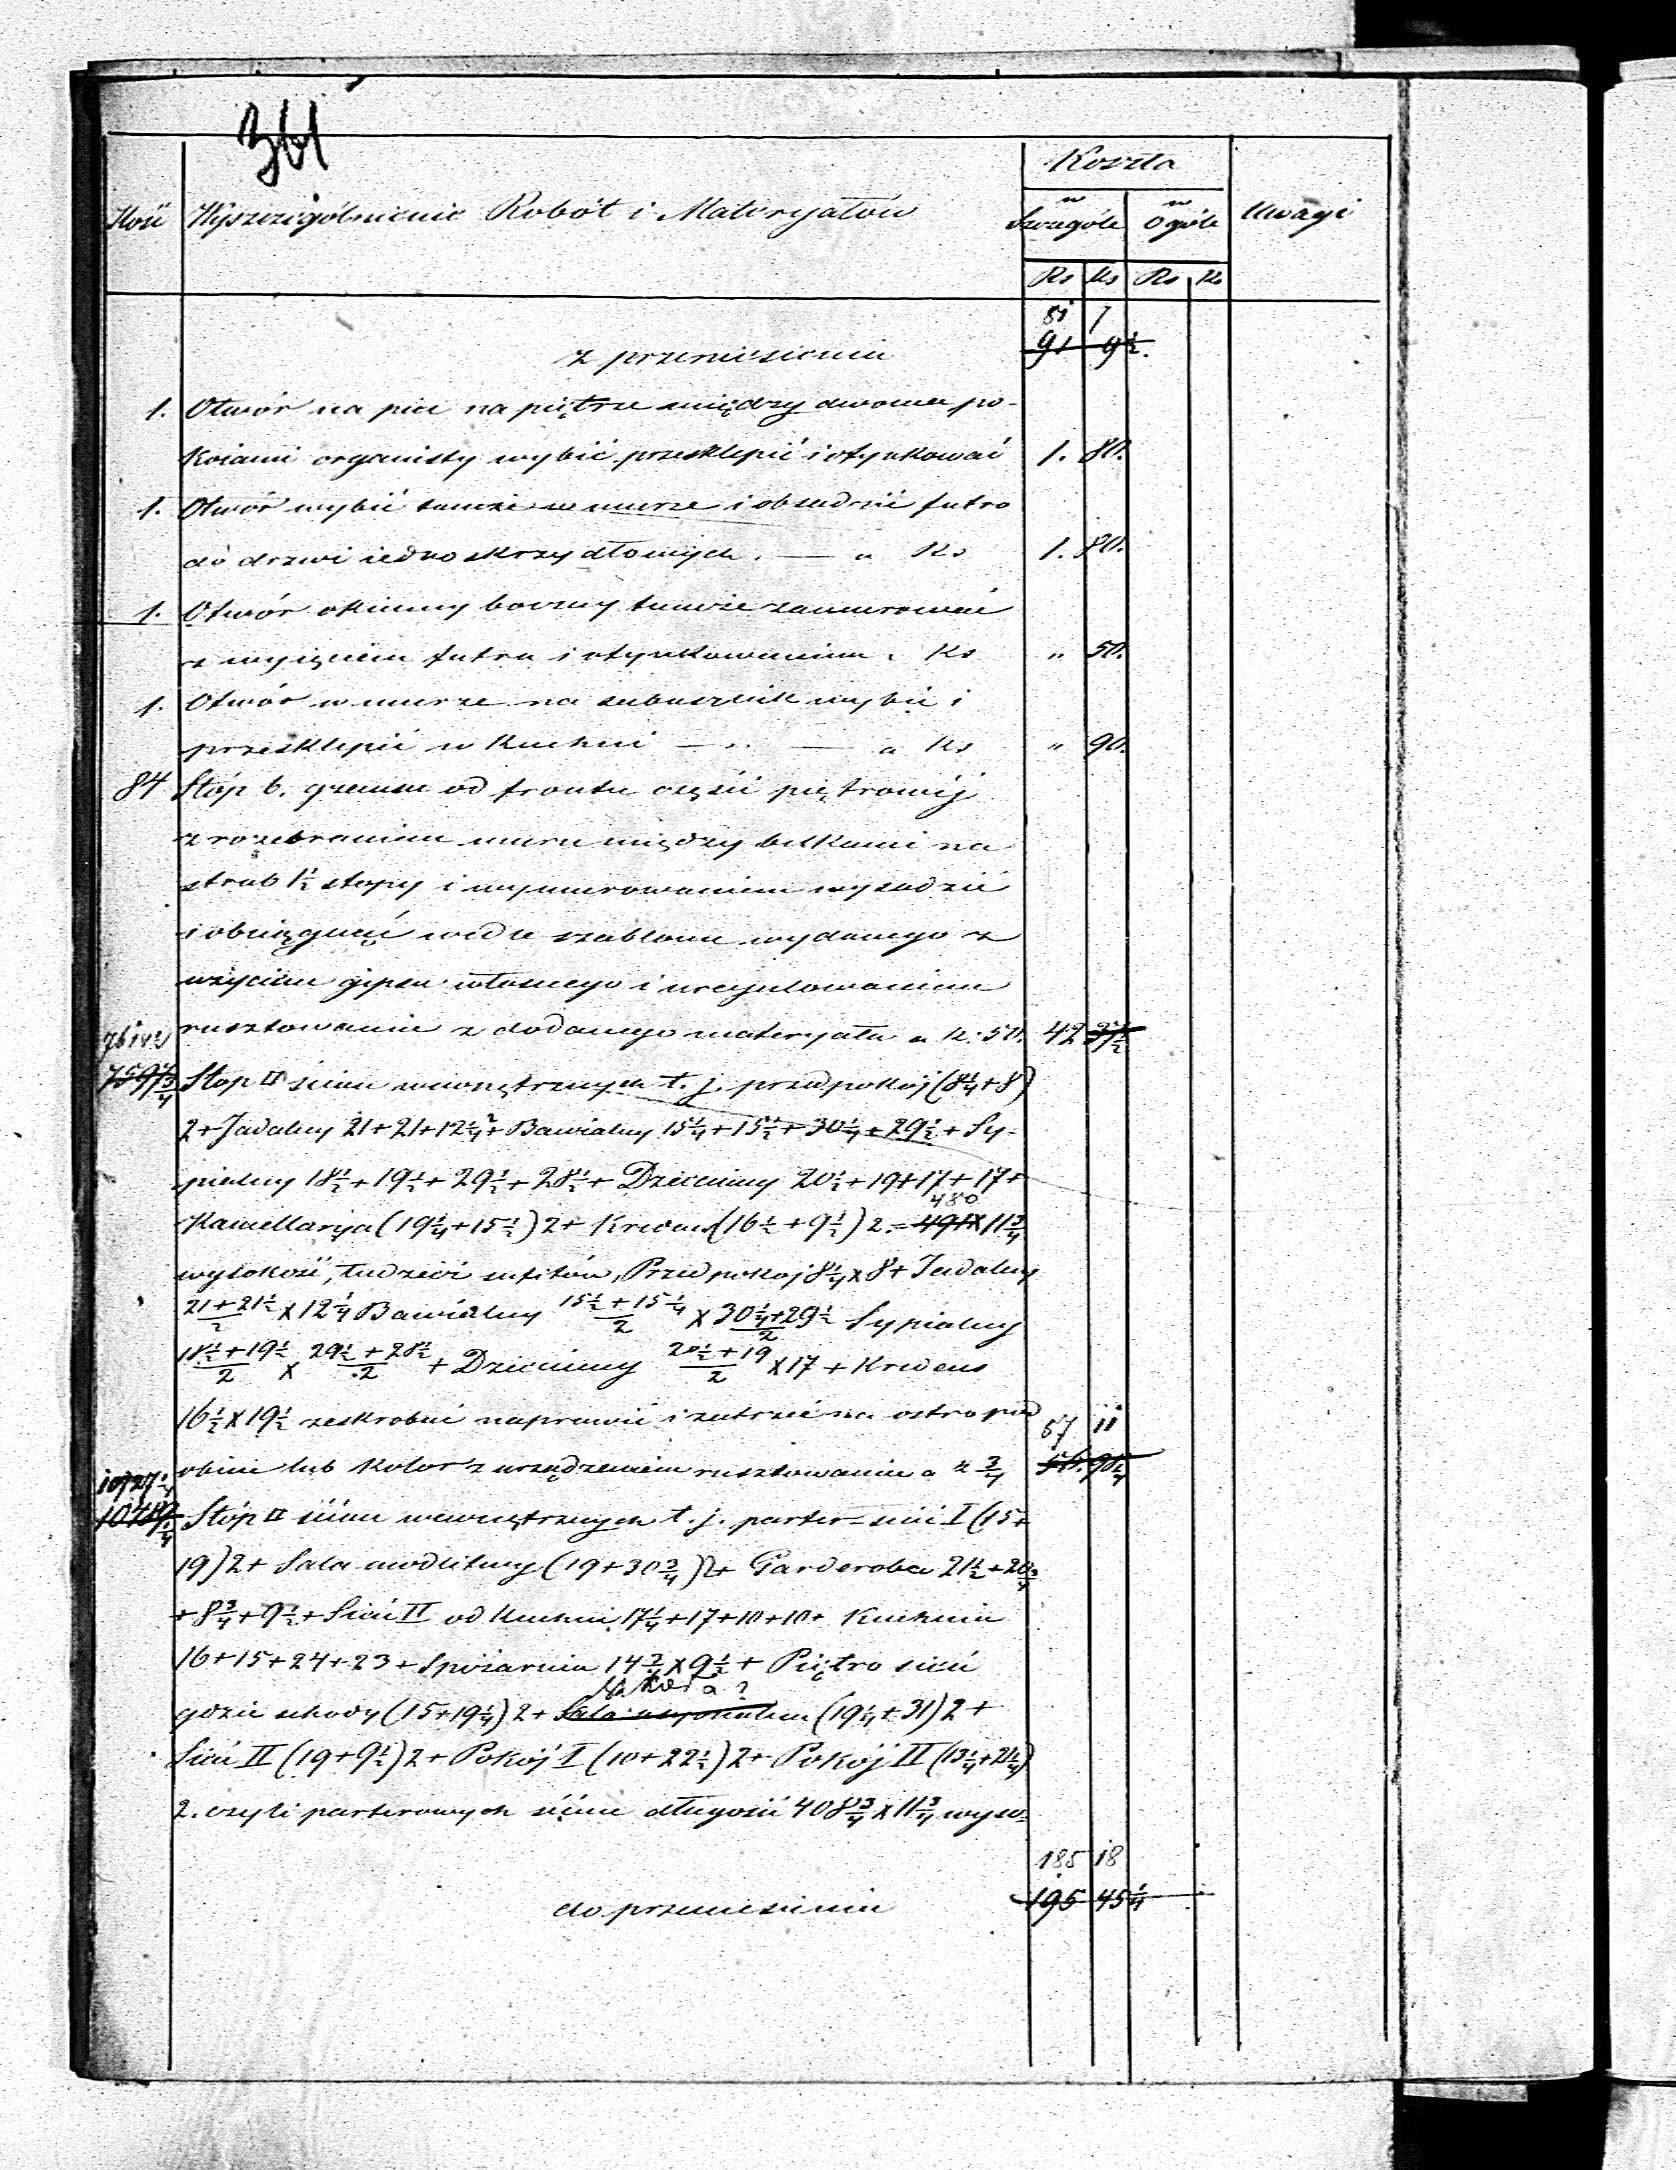 361
Koszta
Ilość Wyszczególnienie Robót i Materyałów w Szczególe w Ogóle Uwagi
Rs Ks Rs Ks
81 7
z przeniesienia 91 9½.
1. Otwór na piec na piętrze między dwoma po-
koiami organisty wybić przesklepić i otynkować 1. 80.
1. Otwór wybić tamże w murze i obsadzić futro
do drzwi iednoskrzydłowych. — a Ks 1. 80.
1. Otwór okienny boczny tamże zamurować
z wyięciem futra i otynkowaniem a Ks " 50.
1. Otwór w murze na sabaśnik wybić i
przesklepić w kuchni — " — a Ks " 90.
84 Stóp b. gzemsu od frontu części piętrowéj
z rozebraniem muru między belkami na
sztrab 1½ stopy i wymurowaniem wysadzić
i obciągnąć wedle szablonu wydanego z
użyciem gipsu własnego i uregulowaniem
rusztowania z dodanego materyału a k. 50. 42
7597¾ Stop □ ścian wewnętrznych t. j. przedpokój (8¼+8)
2+Jadalny 21+21+12¼² + Bawialny 15¼+15½+30¼+29½+Sy-
pialny 18½+19½+29½+28½+ Dziecinny 20½+19+17+17+
480
Kancellaryja (19¼+15½)2+ Kredens (16½+9½)2.=491×11¾
wysokość, tudzież sufitów, Przedpokoj 8¼×8+Jadalny
21+21½/2 ×12¼ Bawialny 15½+15¼/2 × 30¼+29½/2 Sypialny
18½+19½/2 × 29½+28½/2 + Dziecinny 20½+19/2 ×17+Kredens
16½×19½ zeskrobać naprawić i zatrzeć na ostro pod 57 11
obicie lub kolor z urządzeniem rusztowania a k ¾
10727¼
Stóp □ ścian wewnętrznych t. j. parter – sień I (15+
19)2+ Sala modlitwy (19+30¾)2+ Garderoba 21½+20¾
+8¾+9½+Sień II od kuchni 17¼+17+10+10+ Kuchnia
16+15+24+23+Spiżarnia 14¾×9½+ Piętro sień
gdzie schody (15+19¼)2+ Sala (19¼+31)2+
Sień II (19+9½)2+Pokój I (10+22½)2+ Pokój II (13¼+21¼)
2. czyli parterowych ścian długość 408¾×11¾ wyso-
185 18
do przeniesienia 195 45¼